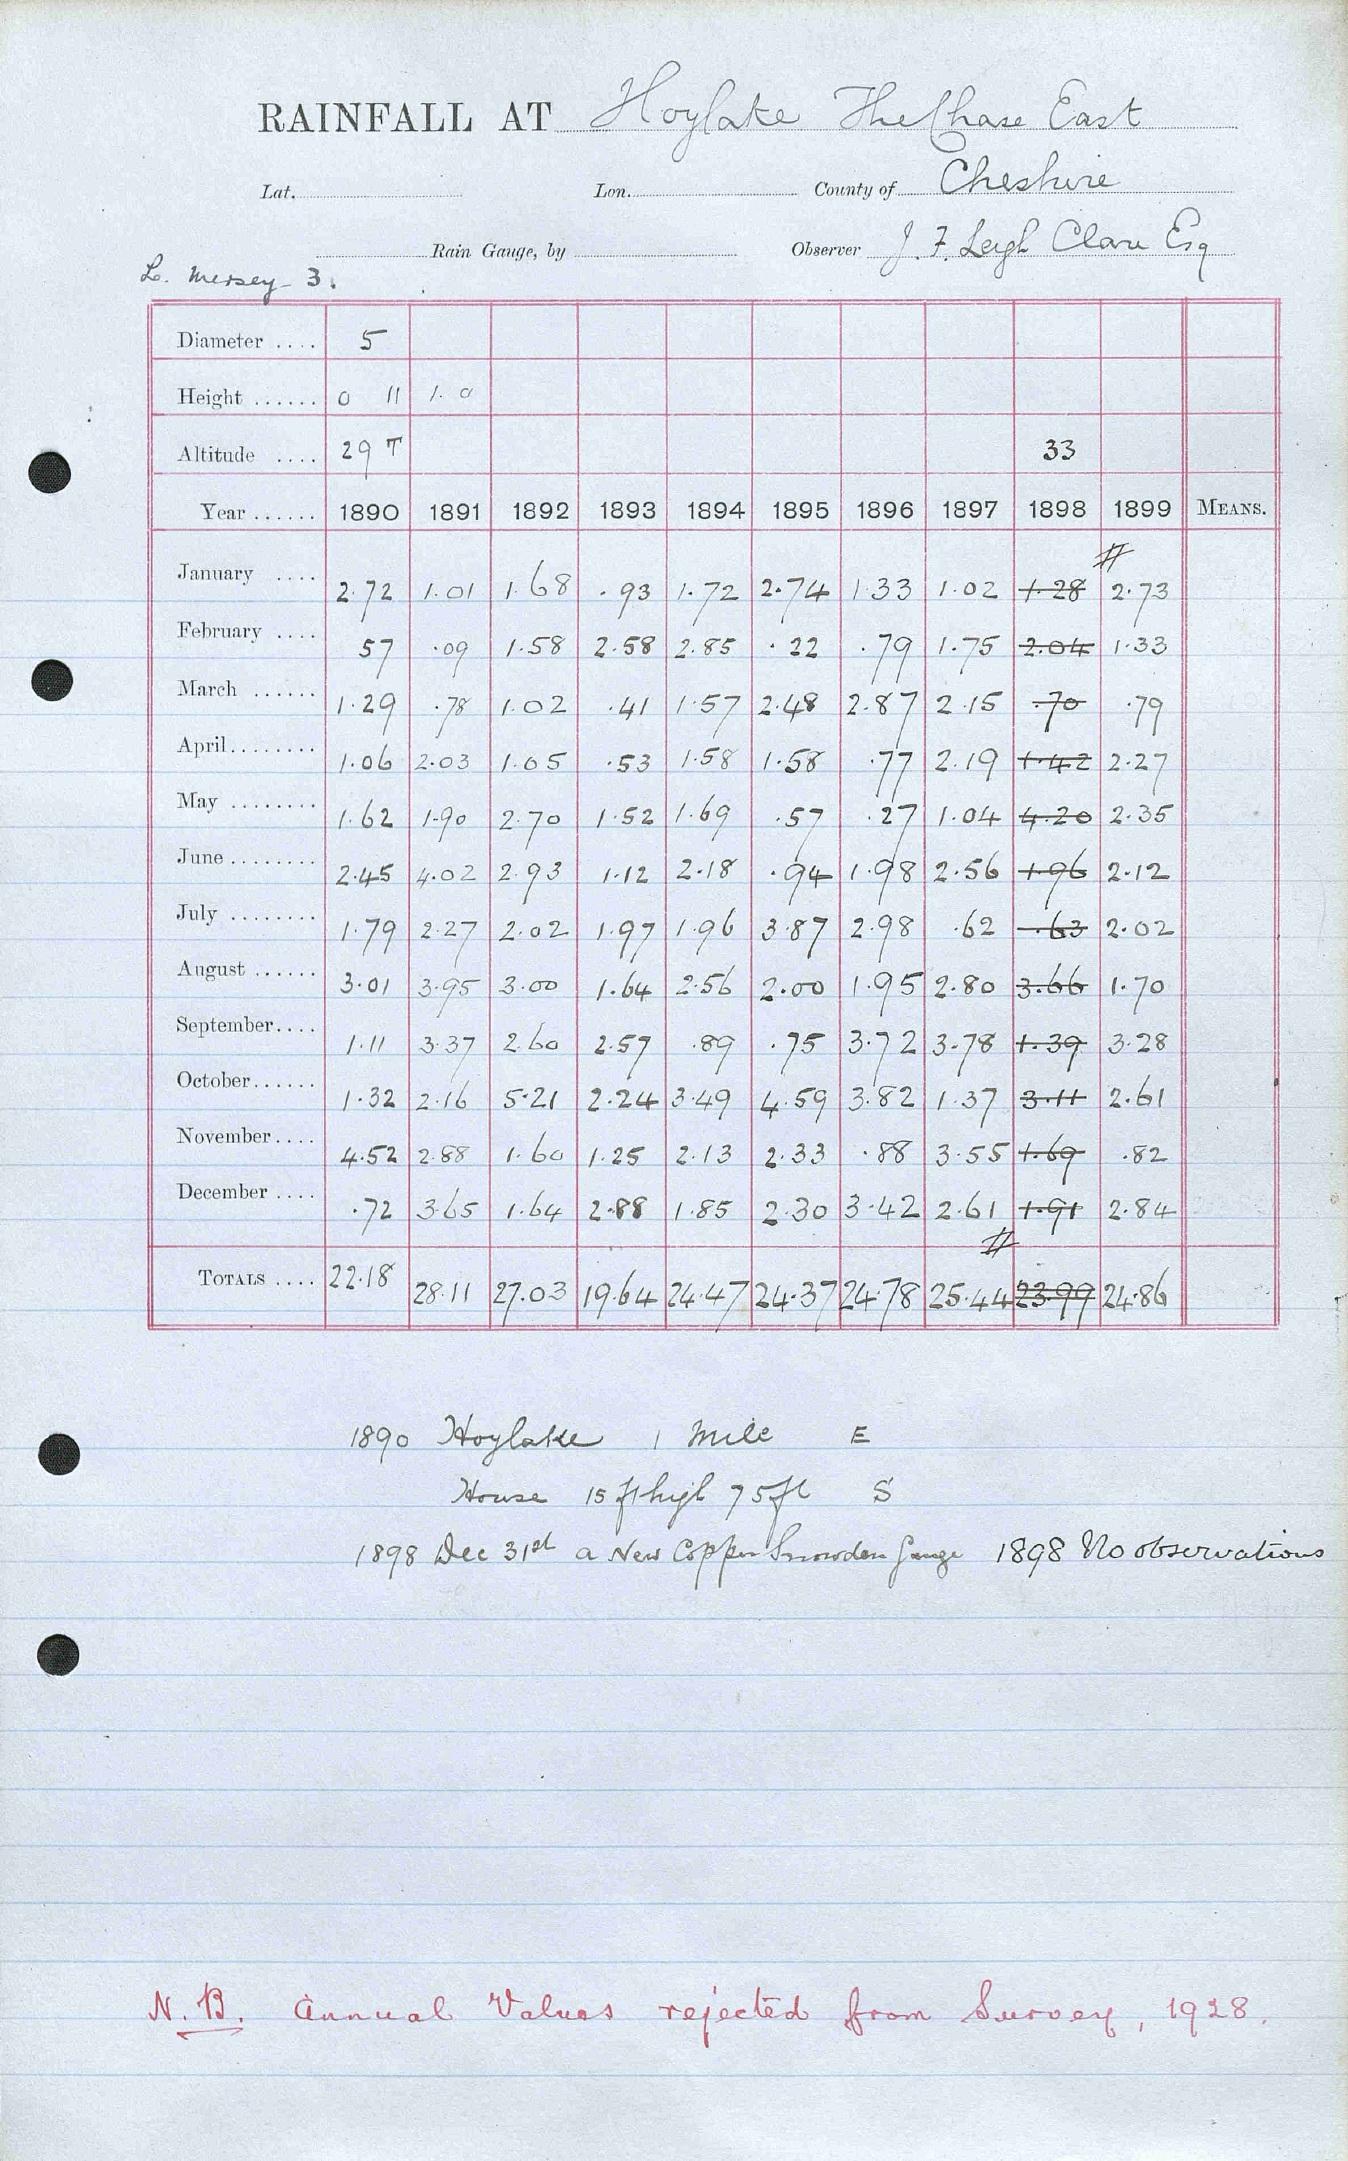 RAINFALL AT Hoylake The Chase East
Lat. Lon. County of Cheshire
Rain Gauge, by Observer J. F. Leigh Clare Esq
L. Mersey 3.
Diameter .... 5
Height ...... 0 11 1.0
Altitude .... 29 T 33
Year ...... 1890 1891 1892 1893 1894 1895 1896 1897 1898 1899 MEANS.
#
January .... 2.72 1.01 1.68 .93 1.72 2.74 1.33 1.02 1.28 2.73
February .... 57 .09 1.58 2.58 2.85 .22 .79 1.75 2.04 1.33
March ...... 1.29 .78 1.02 .41 1.57 2.48 2.87 2.15 .70 .79
April........ 1.06 2.03 1.05 .53 1.58 1.58 .77 2.19 1.42 2.27
May ........ 1.62 1.90 2.70 1.52 1.69 .57 .27 1.04 4.20 2.35
June ........ 2.45 4.02 2.93 1.12 2.18 .94 1.98 2.56 1.96 2.12
July ........ 1.79 2.27 2.02 1.97 1.96 3.87 2.98 .62 .63 2.02
August ...... 3.01 3.95 3.00 1.64 2.56 2.00 1.95 2.80 3.66 1.70
September.... 1.11 3.37 2.60 2.57 .89 .75 3.72 3.78 1.39 3.28
October...... 1.32 2.16 5.21 2.24 3.49 4.59 3.82 1.37 3.11 2.61
November.... 4.52 2.88 1.60 1.25 2.13 2.33 .88 3.55 1.69 .82
December .... .72 3.65 1.64 2.88 1.85 2.30 3.42 2.61 1.91 2.84
#
TOTALS .... 22.18 28.11 27.03 19.64 24.47 24.37 24.78 25.44 23.99 24.86
1890 Hoylake 1 Mile E
House 15 ft high 75 ft S
1898 Dec 31st a New Copper Snowdon Gauge 1898 No observations
N.B. Annual Values rejected from Survey, 1928.